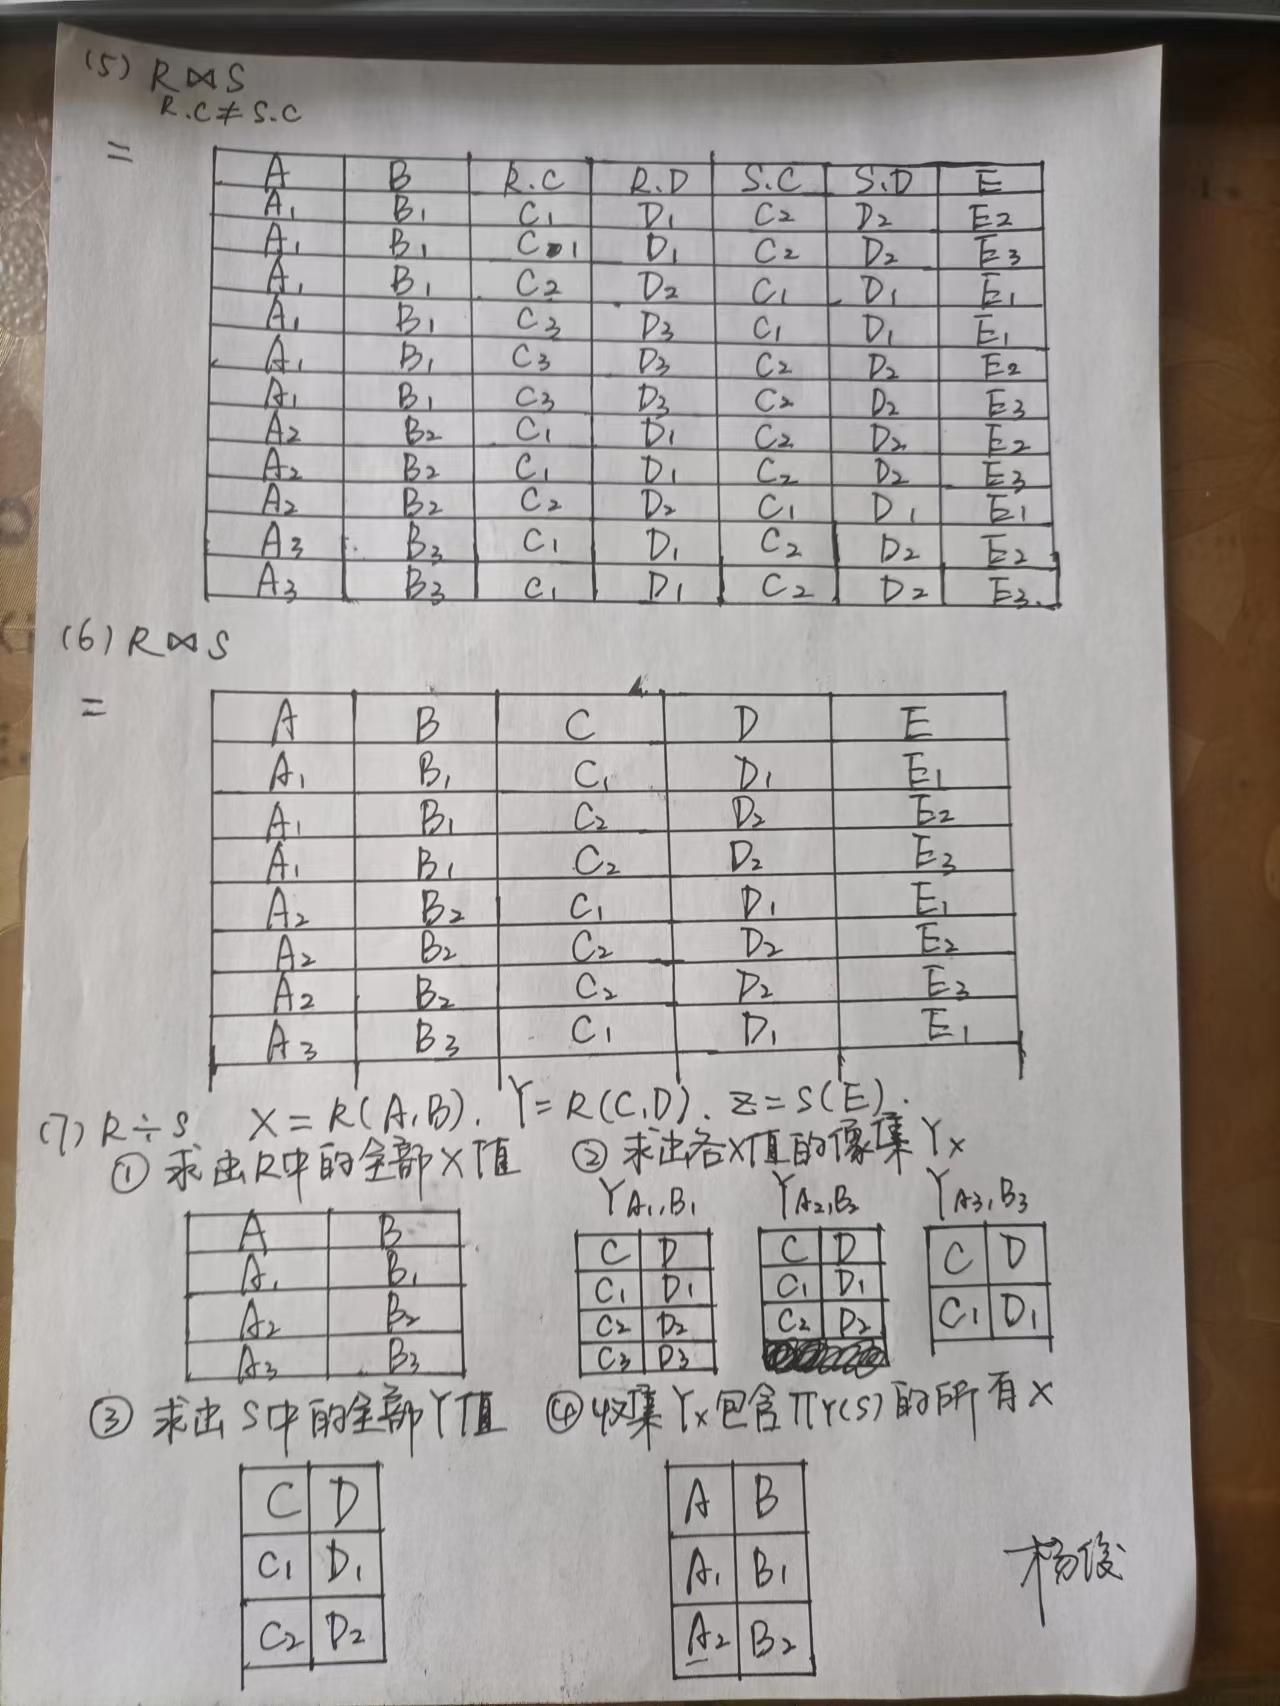 (5) R⋈S
R.C≠S.C
=
A B R.C R.D S.C S.D E
A₁ B₁ C₁ D₁ C₂ D₂ E₂
A₁ B₁ C₁ D₁ C₂ D₂ E₃
A₁ B₁ C₂ D₂ C₁ D₁ E₁
A₁ B₁ C₃ D₃ C₁ D₁ E₁
A₁ B₁ C₃ D₃ C₂ D₂ E₂
A₁ B₁ C₃ D₃ C₂ D₂ E₃
A₂ B₂ C₁ D₁ C₂ D₂ E₂
A₂ B₂ C₁ D₁ C₂ D₂ E₃
A₂ B₂ C₂ D₂ C₁ D₁ E₁
A₃ B₃ C₁ D₁ C₂ D₂ E₂
A₃ B₃ C₁ D₁ C₂ D₂ E₃
(6) R⋈S
=
A B C D E
A₁ B₁ C₁ D₁ E₁
A₁ B₁ C₂ D₂ E₂
A₁ B₁ C₂ D₂ E₃
A₂ B₂ C₁ D₁ E₁
A₂ B₂ C₂ D₂ E₂
A₂ B₂ C₂ D₂ E₃
A₃ B₃ C₁ D₁ E₁
(7) R÷S X=R(A,B). Y=R(C,D). Z=S(E).
① 求出R中的全部X值
A B
A₁ B₁
A₂ B₂
A₃ B₃
② 求出各X值的像集Yₓ
Y A₁,B₁
C D
C₁ D₁
C₂ D₂
C₃ D₃
Y A₂,B₂
C D
C₁ D₁
C₂ D₂
Y A₃,B₃
C D
C₁ D₁
③ 求出S中的全部Y值
C D
C₁ D₁
C₂ D₂
④ 收集Yₓ包含πY(S)的所有X
A B
A₁ B₁
A₂ B₂
杨俊